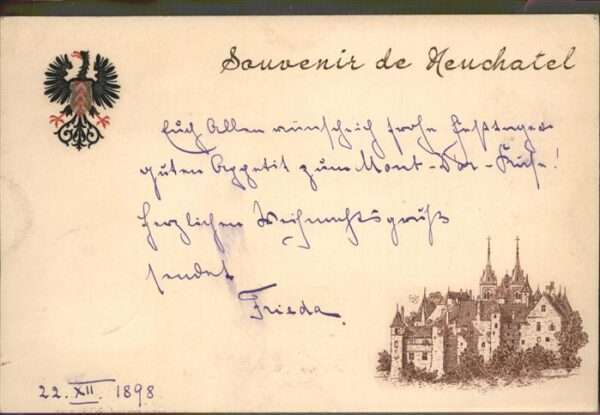 Souvenir de Neuchatel
Euch Allen wünsche ich frohe Festtage u.
guten Appetit zum Mont-Dor-Käse!
Herzlichen Weihnachtsgruß
sendet
Frieda.
22. XII. 1898